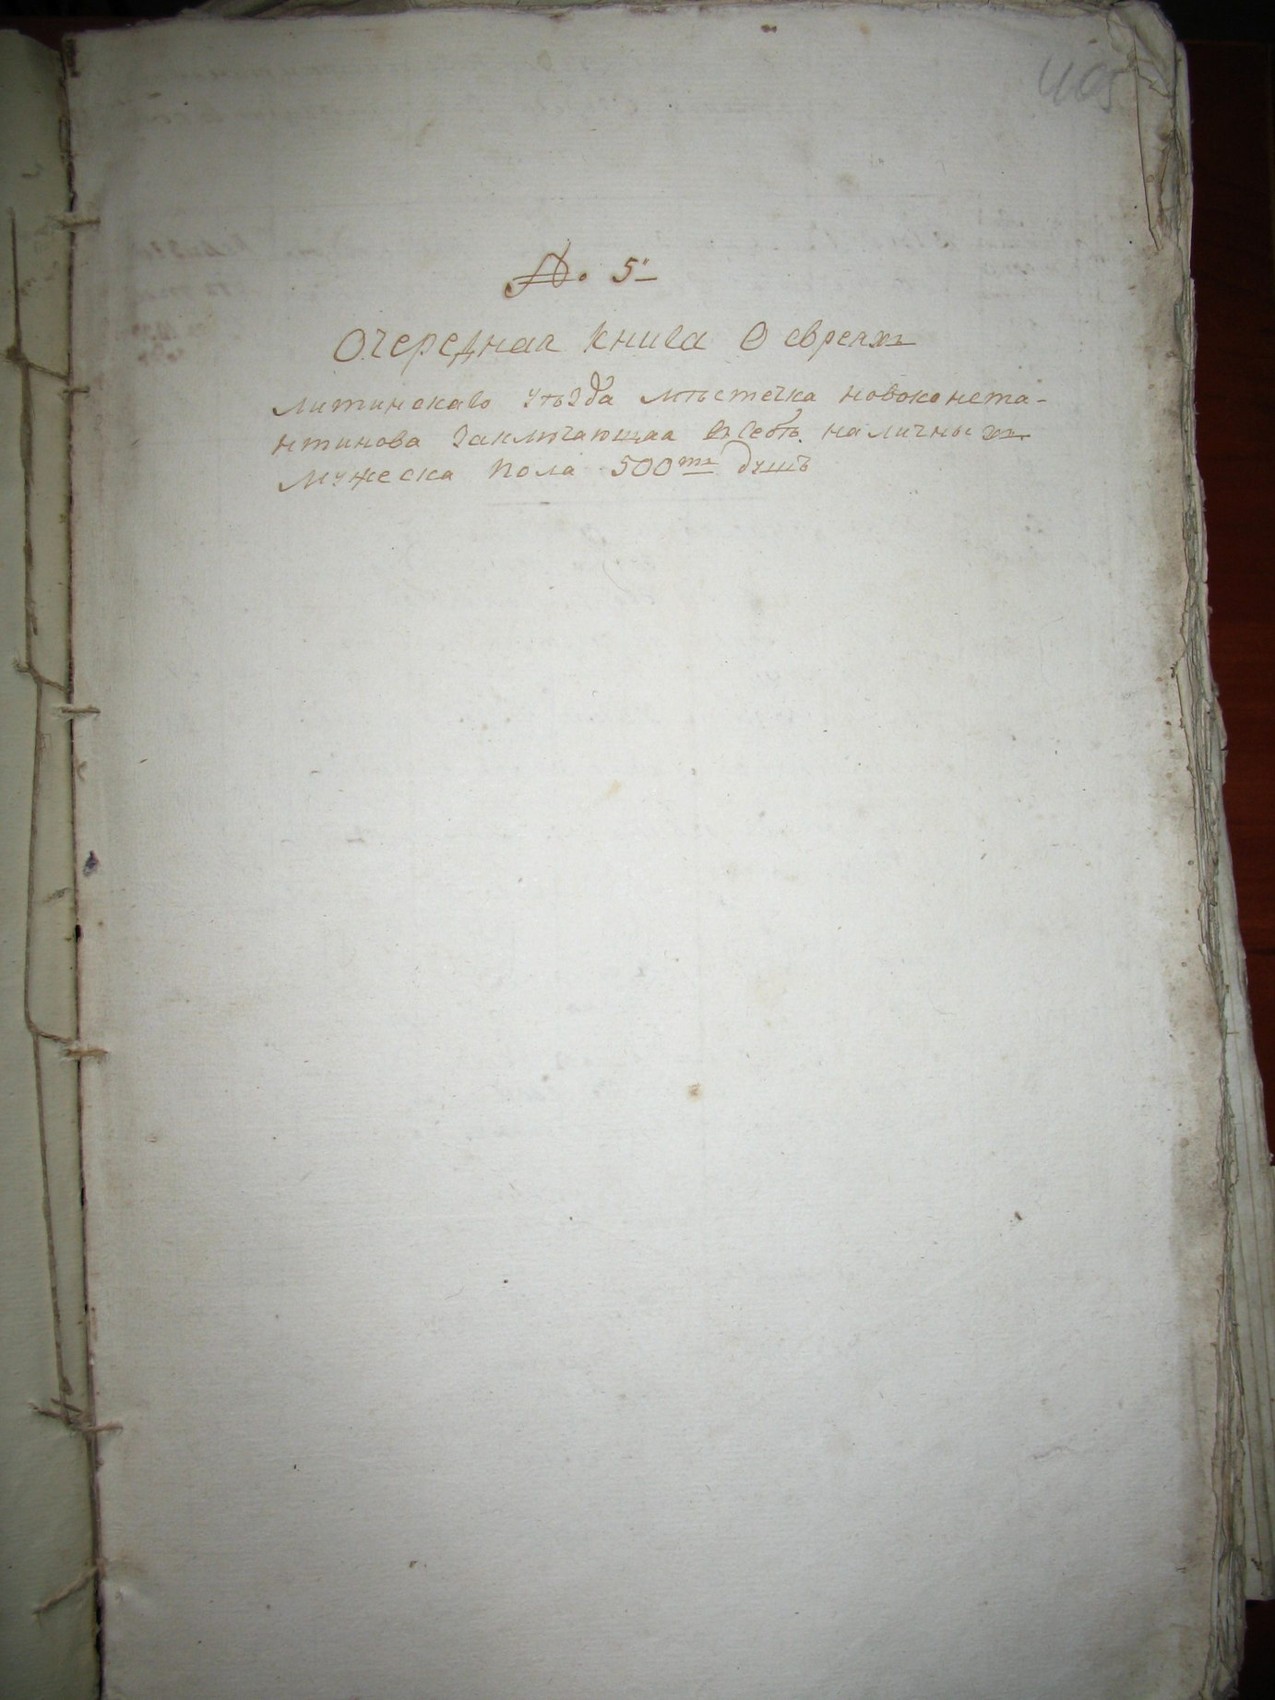 № 5й
Очередная книга О евреяхъ
литинскаго уѣзда мѣстечка новоконста-
нтинова заключающая въ себѣ наличныхъ
мужеска пола 500тъ душъ